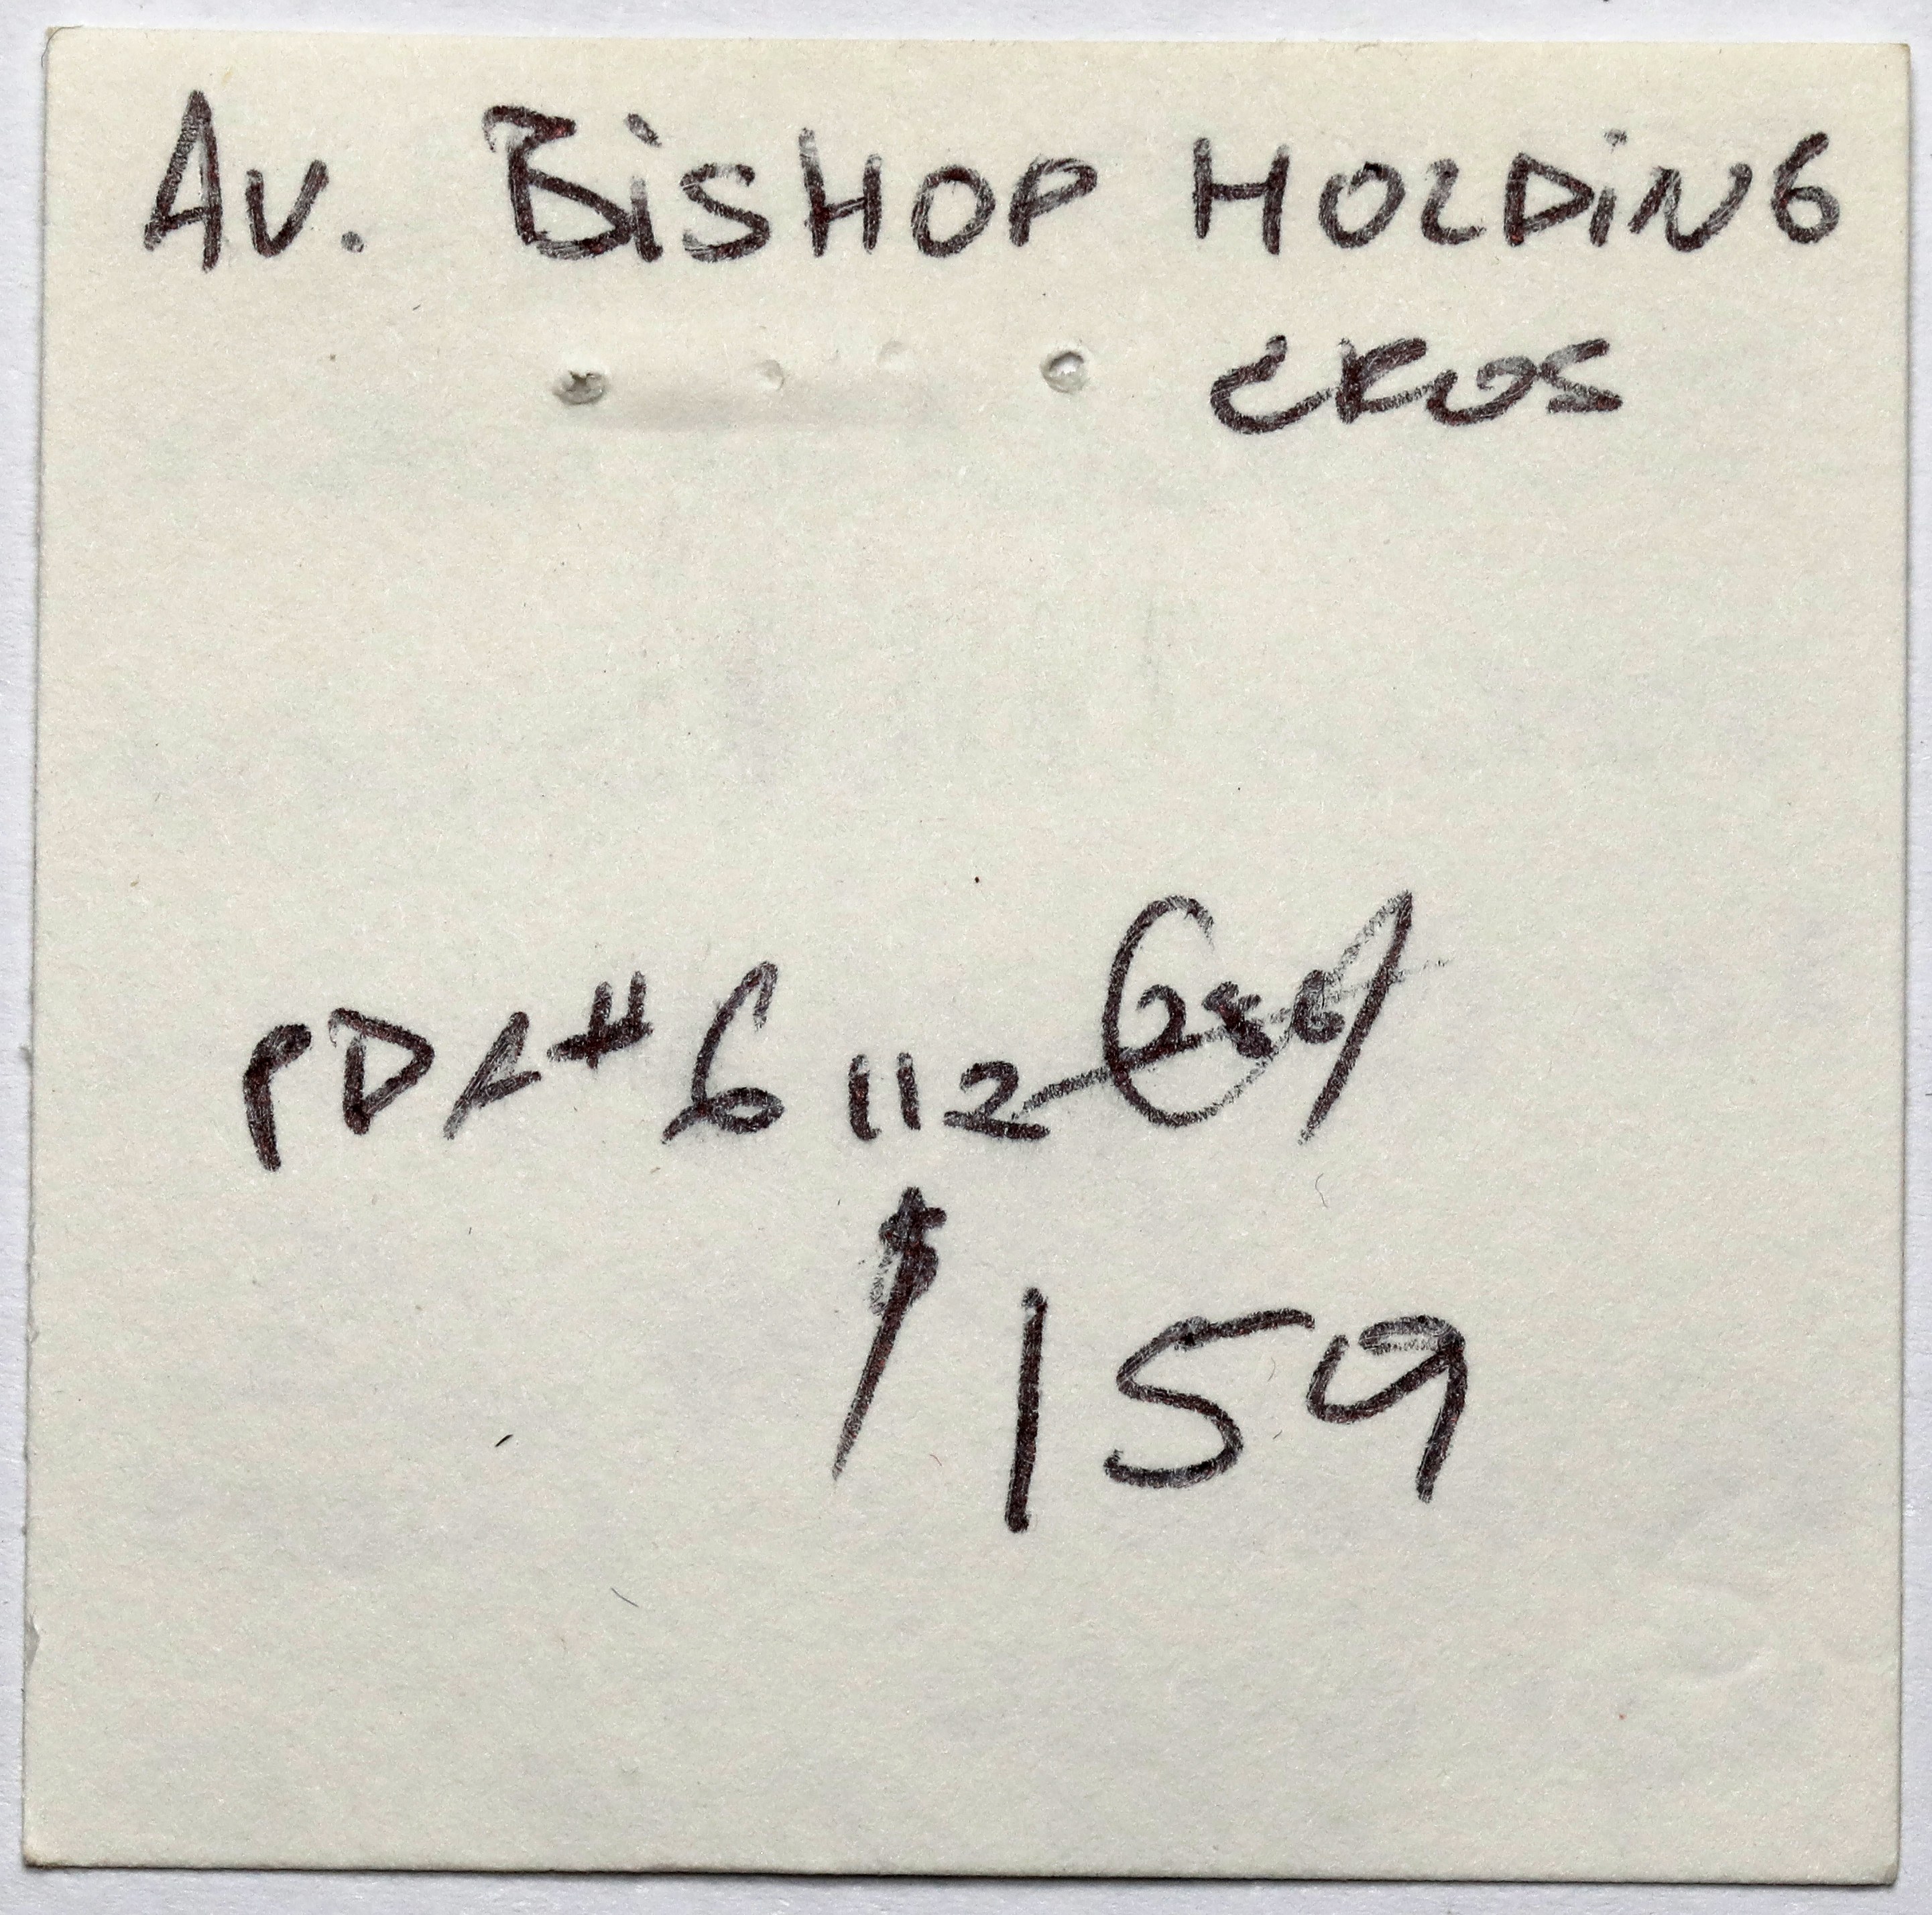 Av. BiSHOP HOLDiNG
CROS
PDA# 6112
$ 159